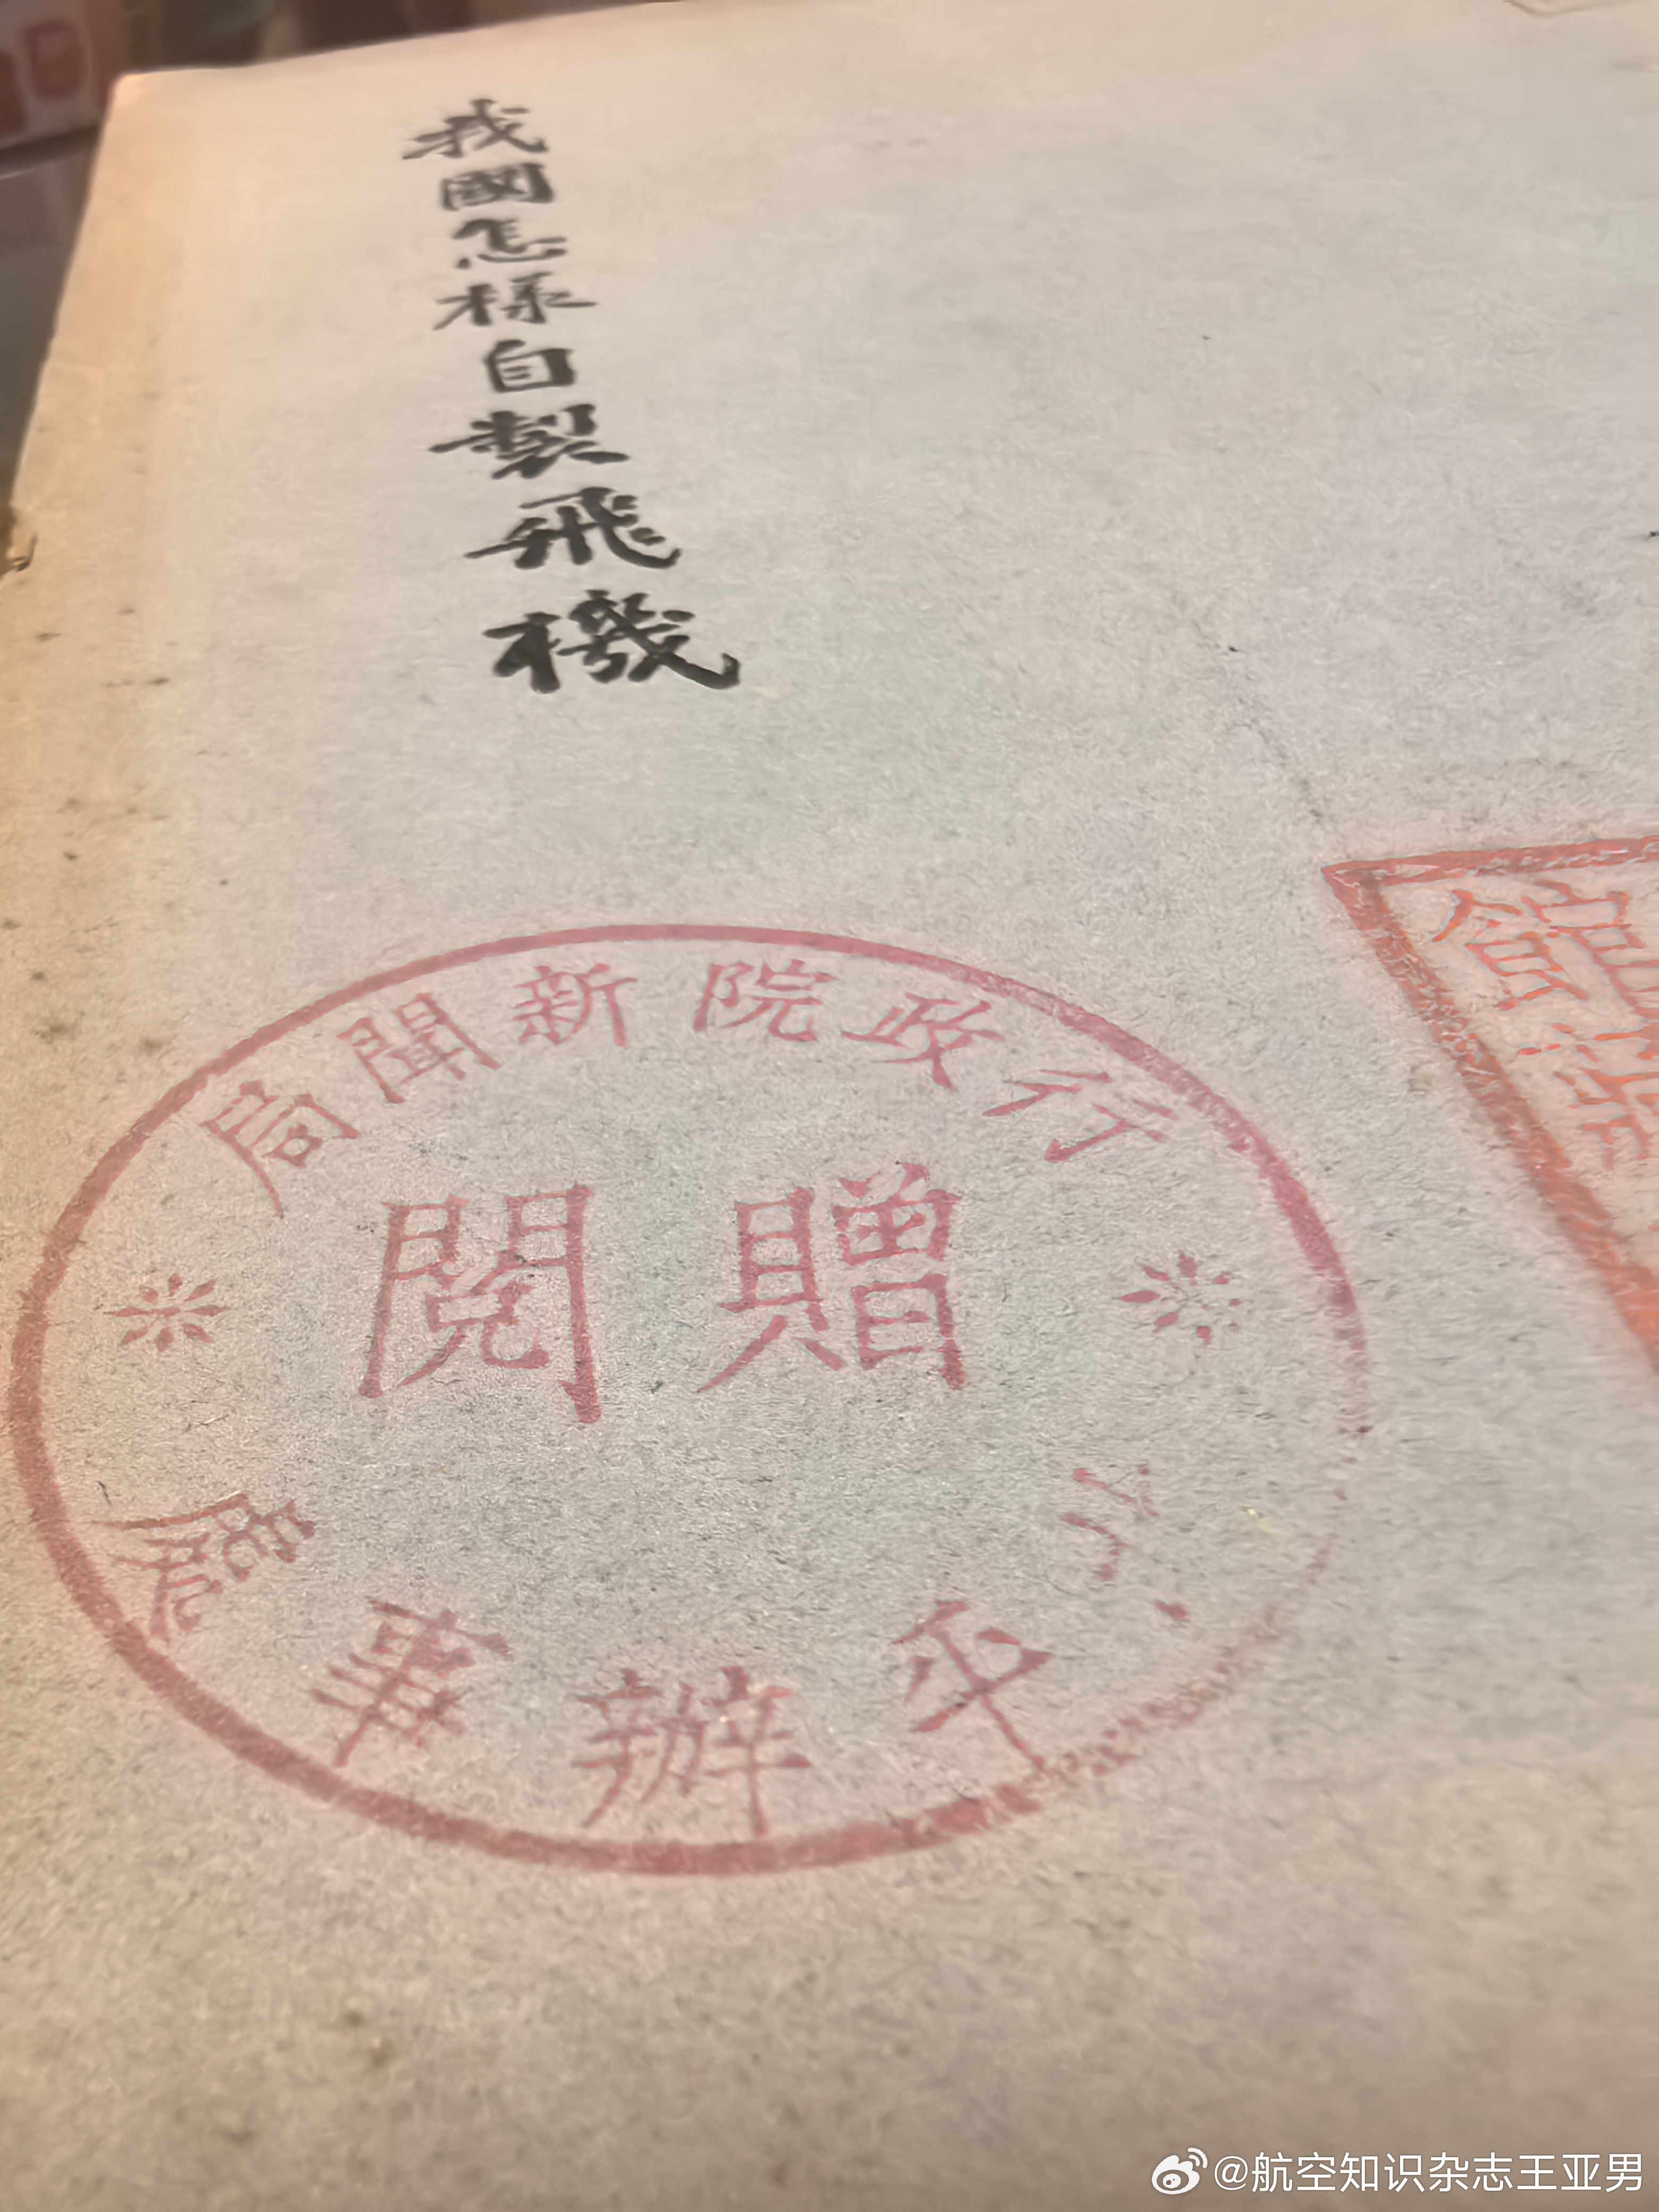 我國怎樣自製飛機
行政院新聞局
贈閱
平辦事處
館
@航空知识杂志王亚男